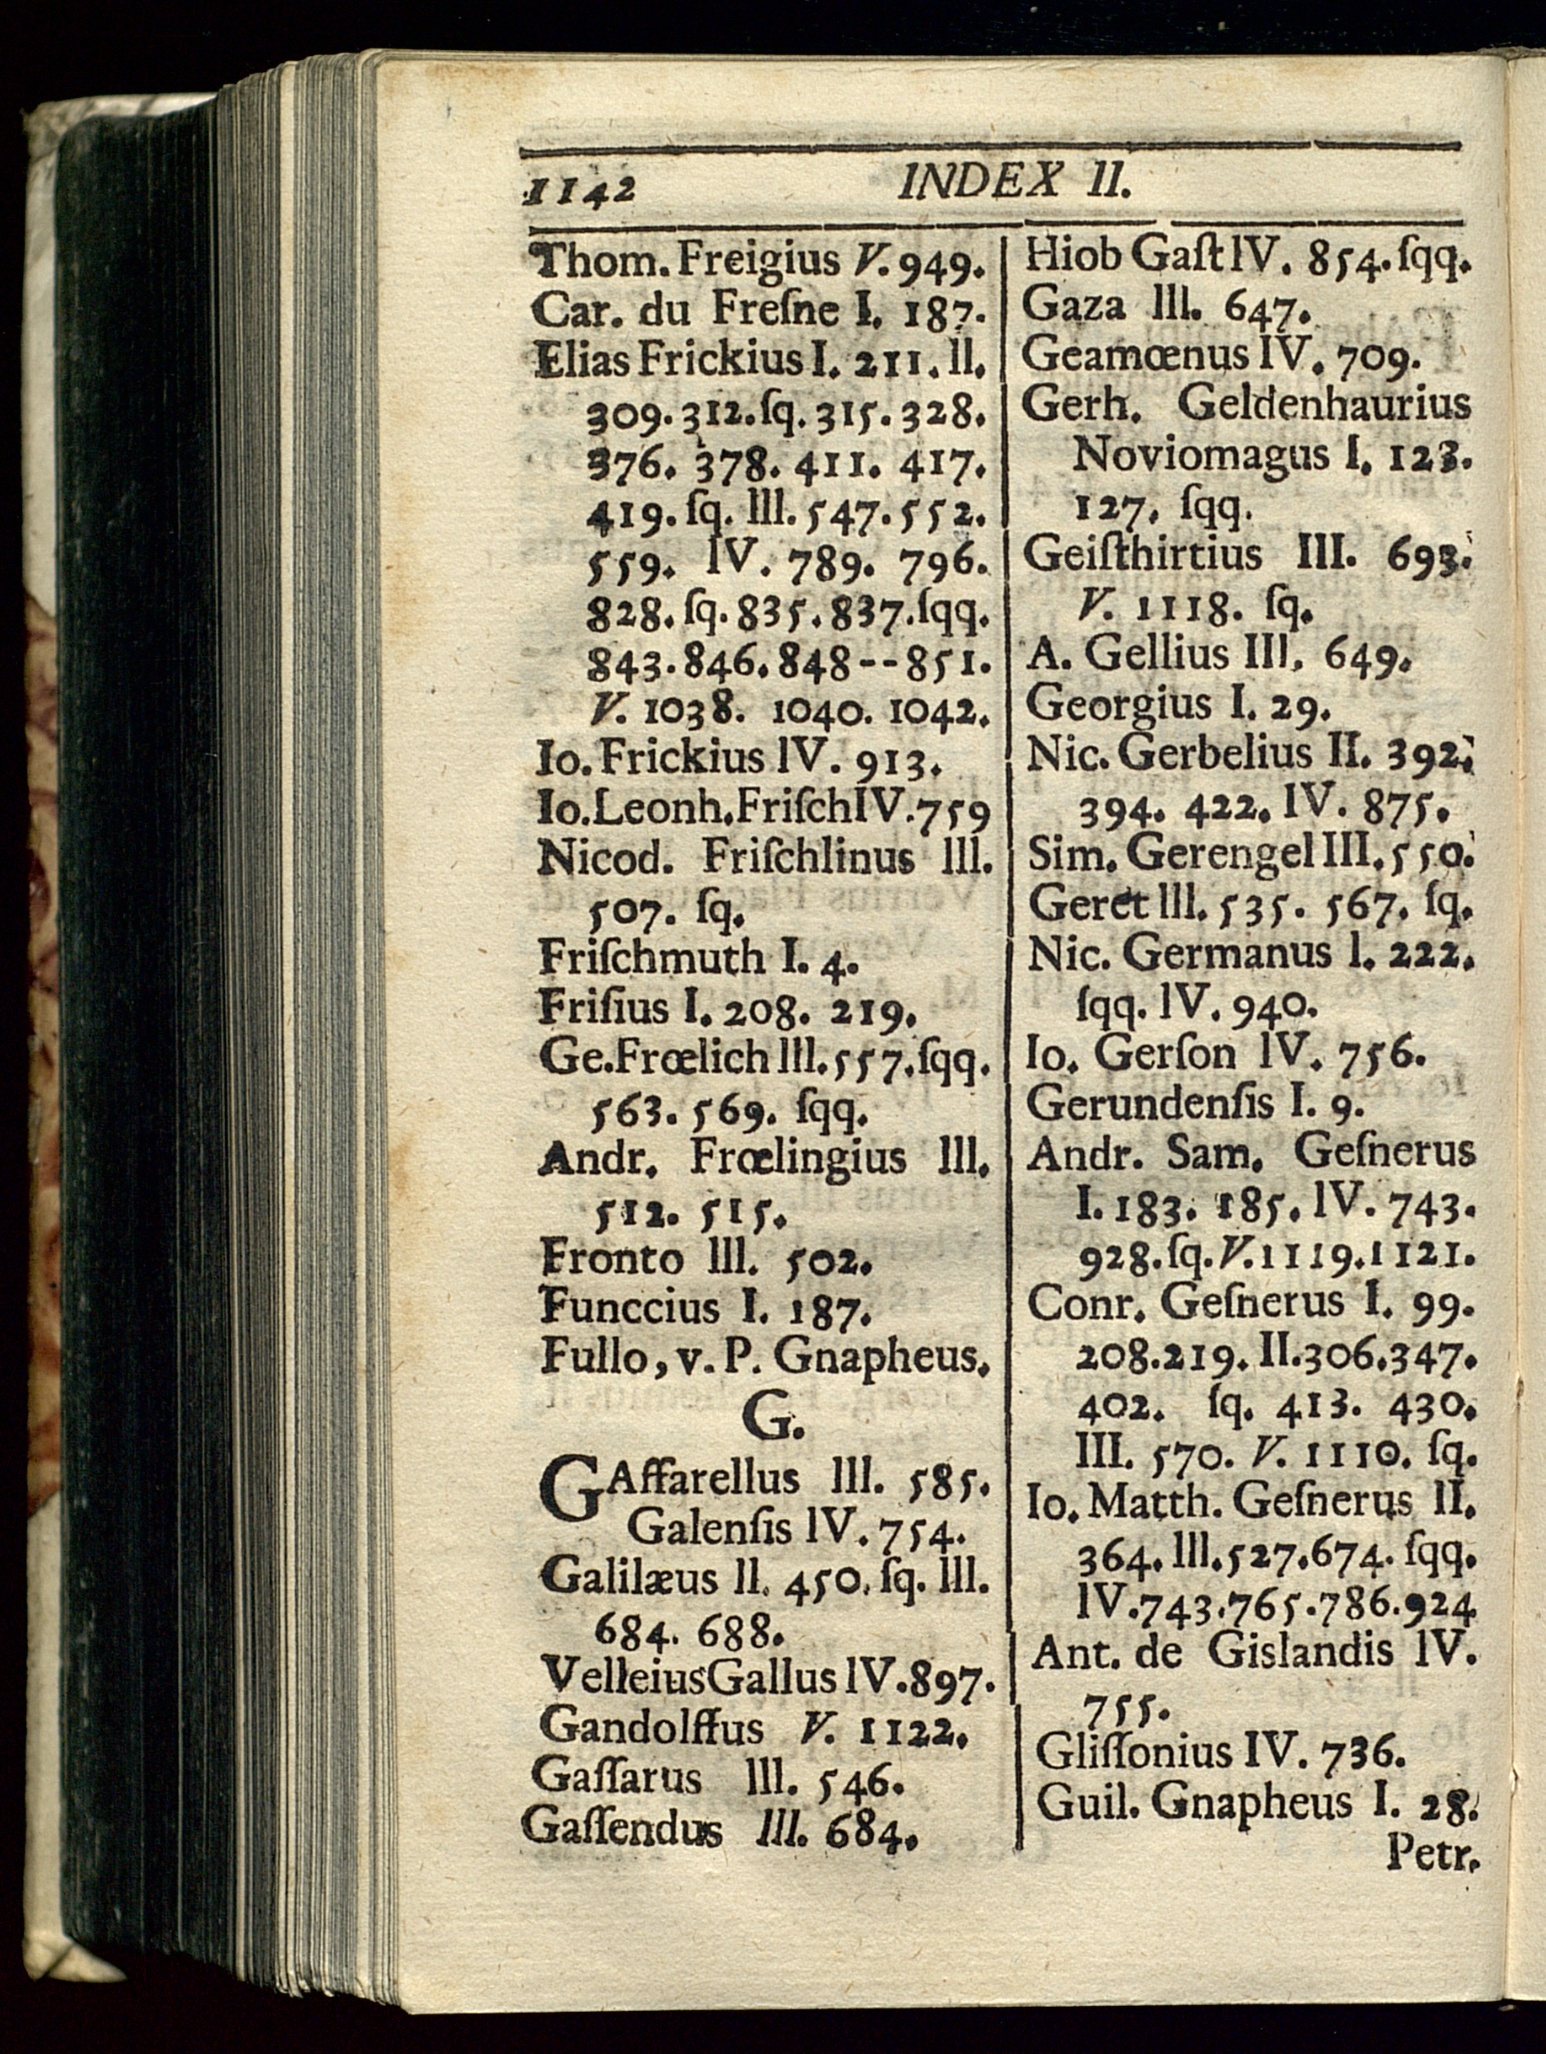 1142 INDEX II.
Thom. Freigius V. 949.
Car. du Freſne I. 187.
Elias Frickius I. 211. II.
309. 312. ſq. 315. 328.
376. 378. 411. 417.
419. ſq. III. 547. 552.
559. IV. 789. 796.
828. ſq. 835. 837. ſqq.
843. 846. 848--851.
V. 1038. 1040. 1042.
Io. Frickius IV. 913.
Io. Leonh. Friſch IV. 759
Nicod. Friſchlinus III.
507. ſq.
Friſchmuth I. 4.
Friſius I. 208. 219.
Ge. Frœlich III. 557. ſqq.
563. 569. ſqq.
Andr. Frœlingius III.
512. 515.
Fronto III. 502.
Funccius I. 187.
Fullo, v. P. Gnapheus.
G.
GAffarellus III. 585.
Galenſis IV. 754.
Galilæus II. 450. ſq. III.
684. 688.
Velleius Gallus IV. 897.
Gandolffus V. 1122.
Gaſſarus III. 546.
Gaſſendus III. 684.
Hiob Gaſt IV. 854. ſqq.
Gaza III. 647.
Geamœnus IV. 709.
Gerh. Geldenhaurius
Noviomagus I. 123.
127. ſqq.
Geiſthirtius III. 693.
V. 1118. ſq.
A. Gellius III. 649.
Georgius I. 29.
Nic. Gerbelius II. 392.
394. 422. IV. 875.
Sim. Gerengel III. 550.
Geret III. 535. 567. ſq.
Nic. Germanus I. 222.
ſqq. IV. 940.
Io. Gerſon IV. 756.
Gerundenſis I. 9.
Andr. Sam. Geſnerus
I. 183. 185. IV. 743.
928. ſq. V. 1119. 1121.
Conr. Geſnerus I. 99.
208. 219. II. 306. 347.
402. ſq. 413. 430.
III. 570. V. 1110. ſq.
Io. Matth. Geſnerus II.
364. III. 527. 674. ſqq.
IV. 743. 765. 786. 924
Ant. de Gislandis IV.
755.
Gliſſonius IV. 736.
Guil. Gnapheus I. 28.
Petr.